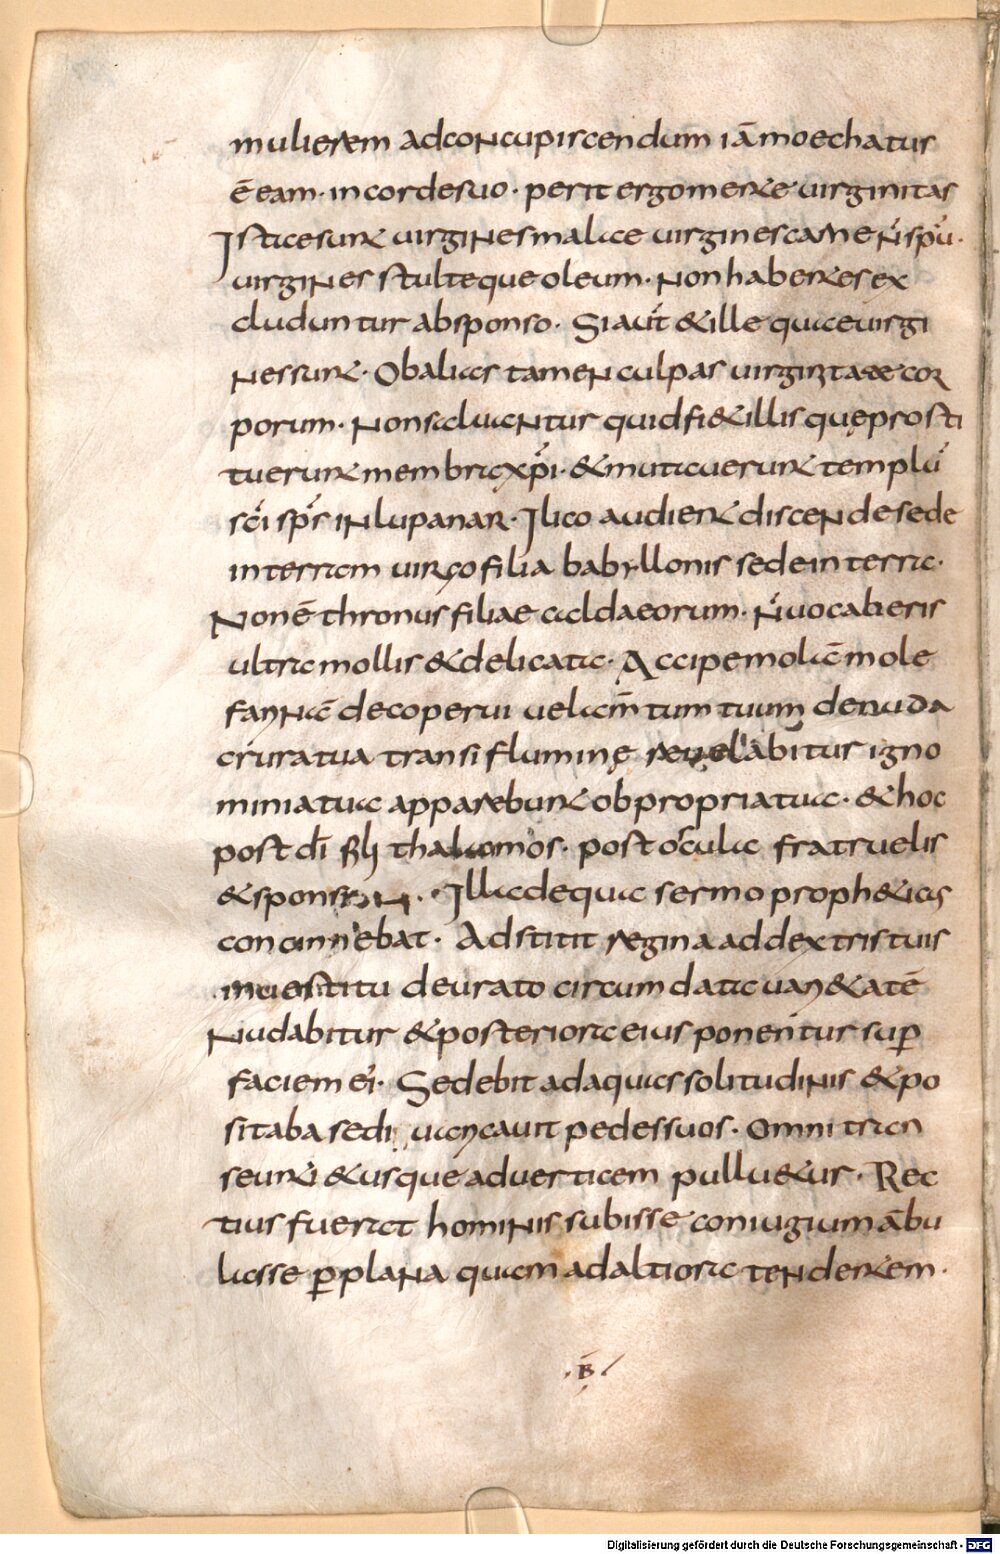 mulierem adconcupiscendum iā moechatus
ē eam · in corde suo · perit ergo mente virginitas
Istae sunt virgines malae virgines carne ń spū ·
virgines stulte que oleum · non habentes ex
cluduntur absponso · Si aūt & ille quae virgi
nes sunt · Ob alias tamen culpas virginitate cor
porum · non saluantur quid fi& illis quę prosti
tuerunt membra xp̄i · & mutauerunt templū
sc̄i sp̄s in lupanar · Ilico audient discende sede
in terram virgo filia babyllonis sede in terra ·
Non ē thronus filiae caldaeorum · ń uocaberis
ultra mollis & delicata · Accipe molā mole
farinā decoperui uelam̄ tum tuum denuda
crura tua transi fluminę reuelabitur igno
minia tua apparebunt obpropria tua · & hoc
post dī filii thalamos · post oscula fratruelis
& sponsi · Illa de qua sermo proph&icus
concinnebat · Adstitit regina ad dextris tuis
in uestitu deurato circumdata uari&atē
Nudabitur & posteriora eius ponentur sup
faciem ei · Sedebit ad aquas solitudinis & po
sita basedi uaricauit pedes suos · omni tran
seunti & usque ad uerticem pullu&ur · Rec
tius fuerat hominis subisse coniugium ābu
lasse p plana quam ad altiora tendentem ·
· B ·
Digitalisierung gefördert durch die Deutsche Forschungsgemeinschaft - DFG